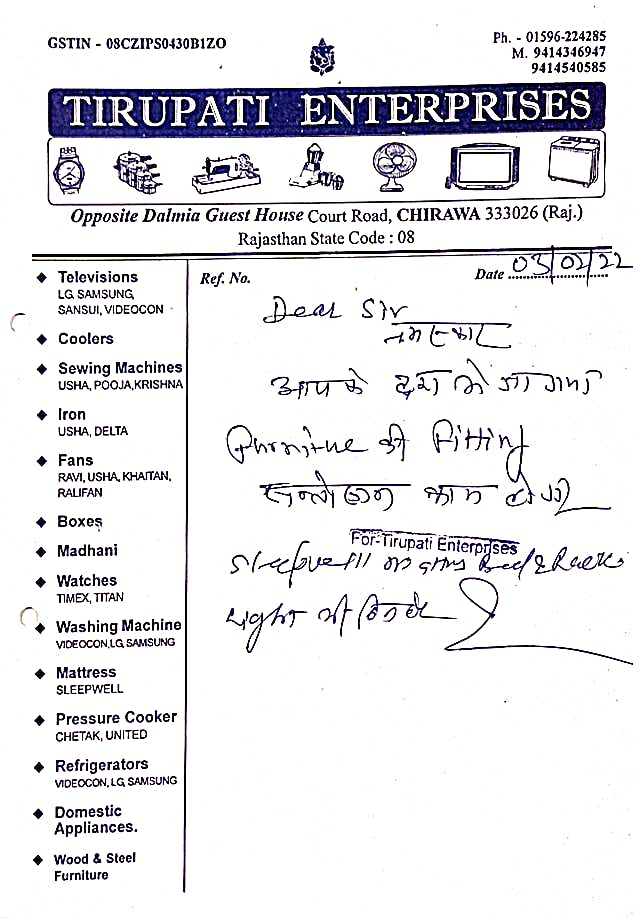 GSTIN - 08CZIPS0430B1ZO
Ph. - 01596-224285
M. 9414346947
9414540585
TIRUPATI ENTERPRISES
Opposite Dalmia Guest House Court Road, CHIRAWA 333026 (Raj.)
Rajasthan State Code : 08
Ref. No.
Date 03/02/22
◆ Televisions
LG, SAMSUNG,
SANSUI, VIDEOCON
◆ Coolers
◆ Sewing Machines
USHA, POOJA,KRISHNA
◆ Iron
USHA, DELTA
◆ Fans
RAVI, USHA, KHAITAN,
RALIFAN
◆ Boxes
◆ Madhani
◆ Watches
TIMEX, TITAN
◆ Washing Machine
VIDEOCON,LG, SAMSUNG
◆ Mattress
SLEEPWELL
◆ Pressure Cooker
CHETAK, UNITED
◆ Refrigerators
VIDEOCON, LG, SAMSUNG
◆ Domestic
Appliances.
◆ Wood & Steel
Furniture
Dear Sir
नमस्कार
आपके द्वारा
Furniture की Fitting
काम
For-Tirupati Enterprises
Sleepwell Bed &